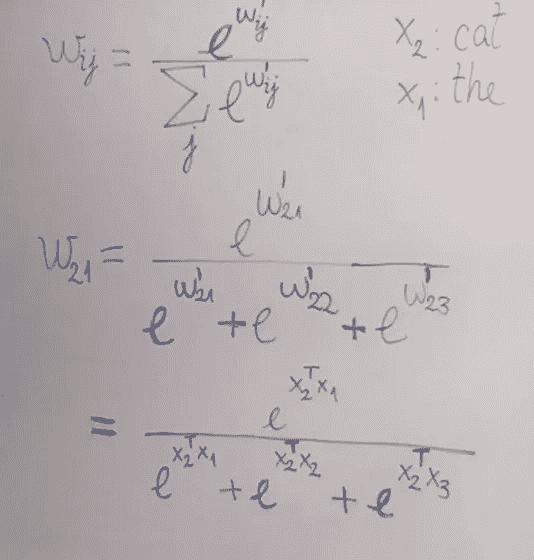 w_{ij} = \frac{e^{w'_{ij}}}{\sum_j e^{w'_{ij}}}
x_2: cat
x_1: the
w_{21} = \frac{e^{w'_{21}}}{e^{w'_{21}} + e^{w'_{22}} + e^{w'_{23}}}
= \frac{e^{x_2^T x_1}}{e^{x_2^T x_1} + e^{x_2^T x_2} + e^{x_2^T x_3}}